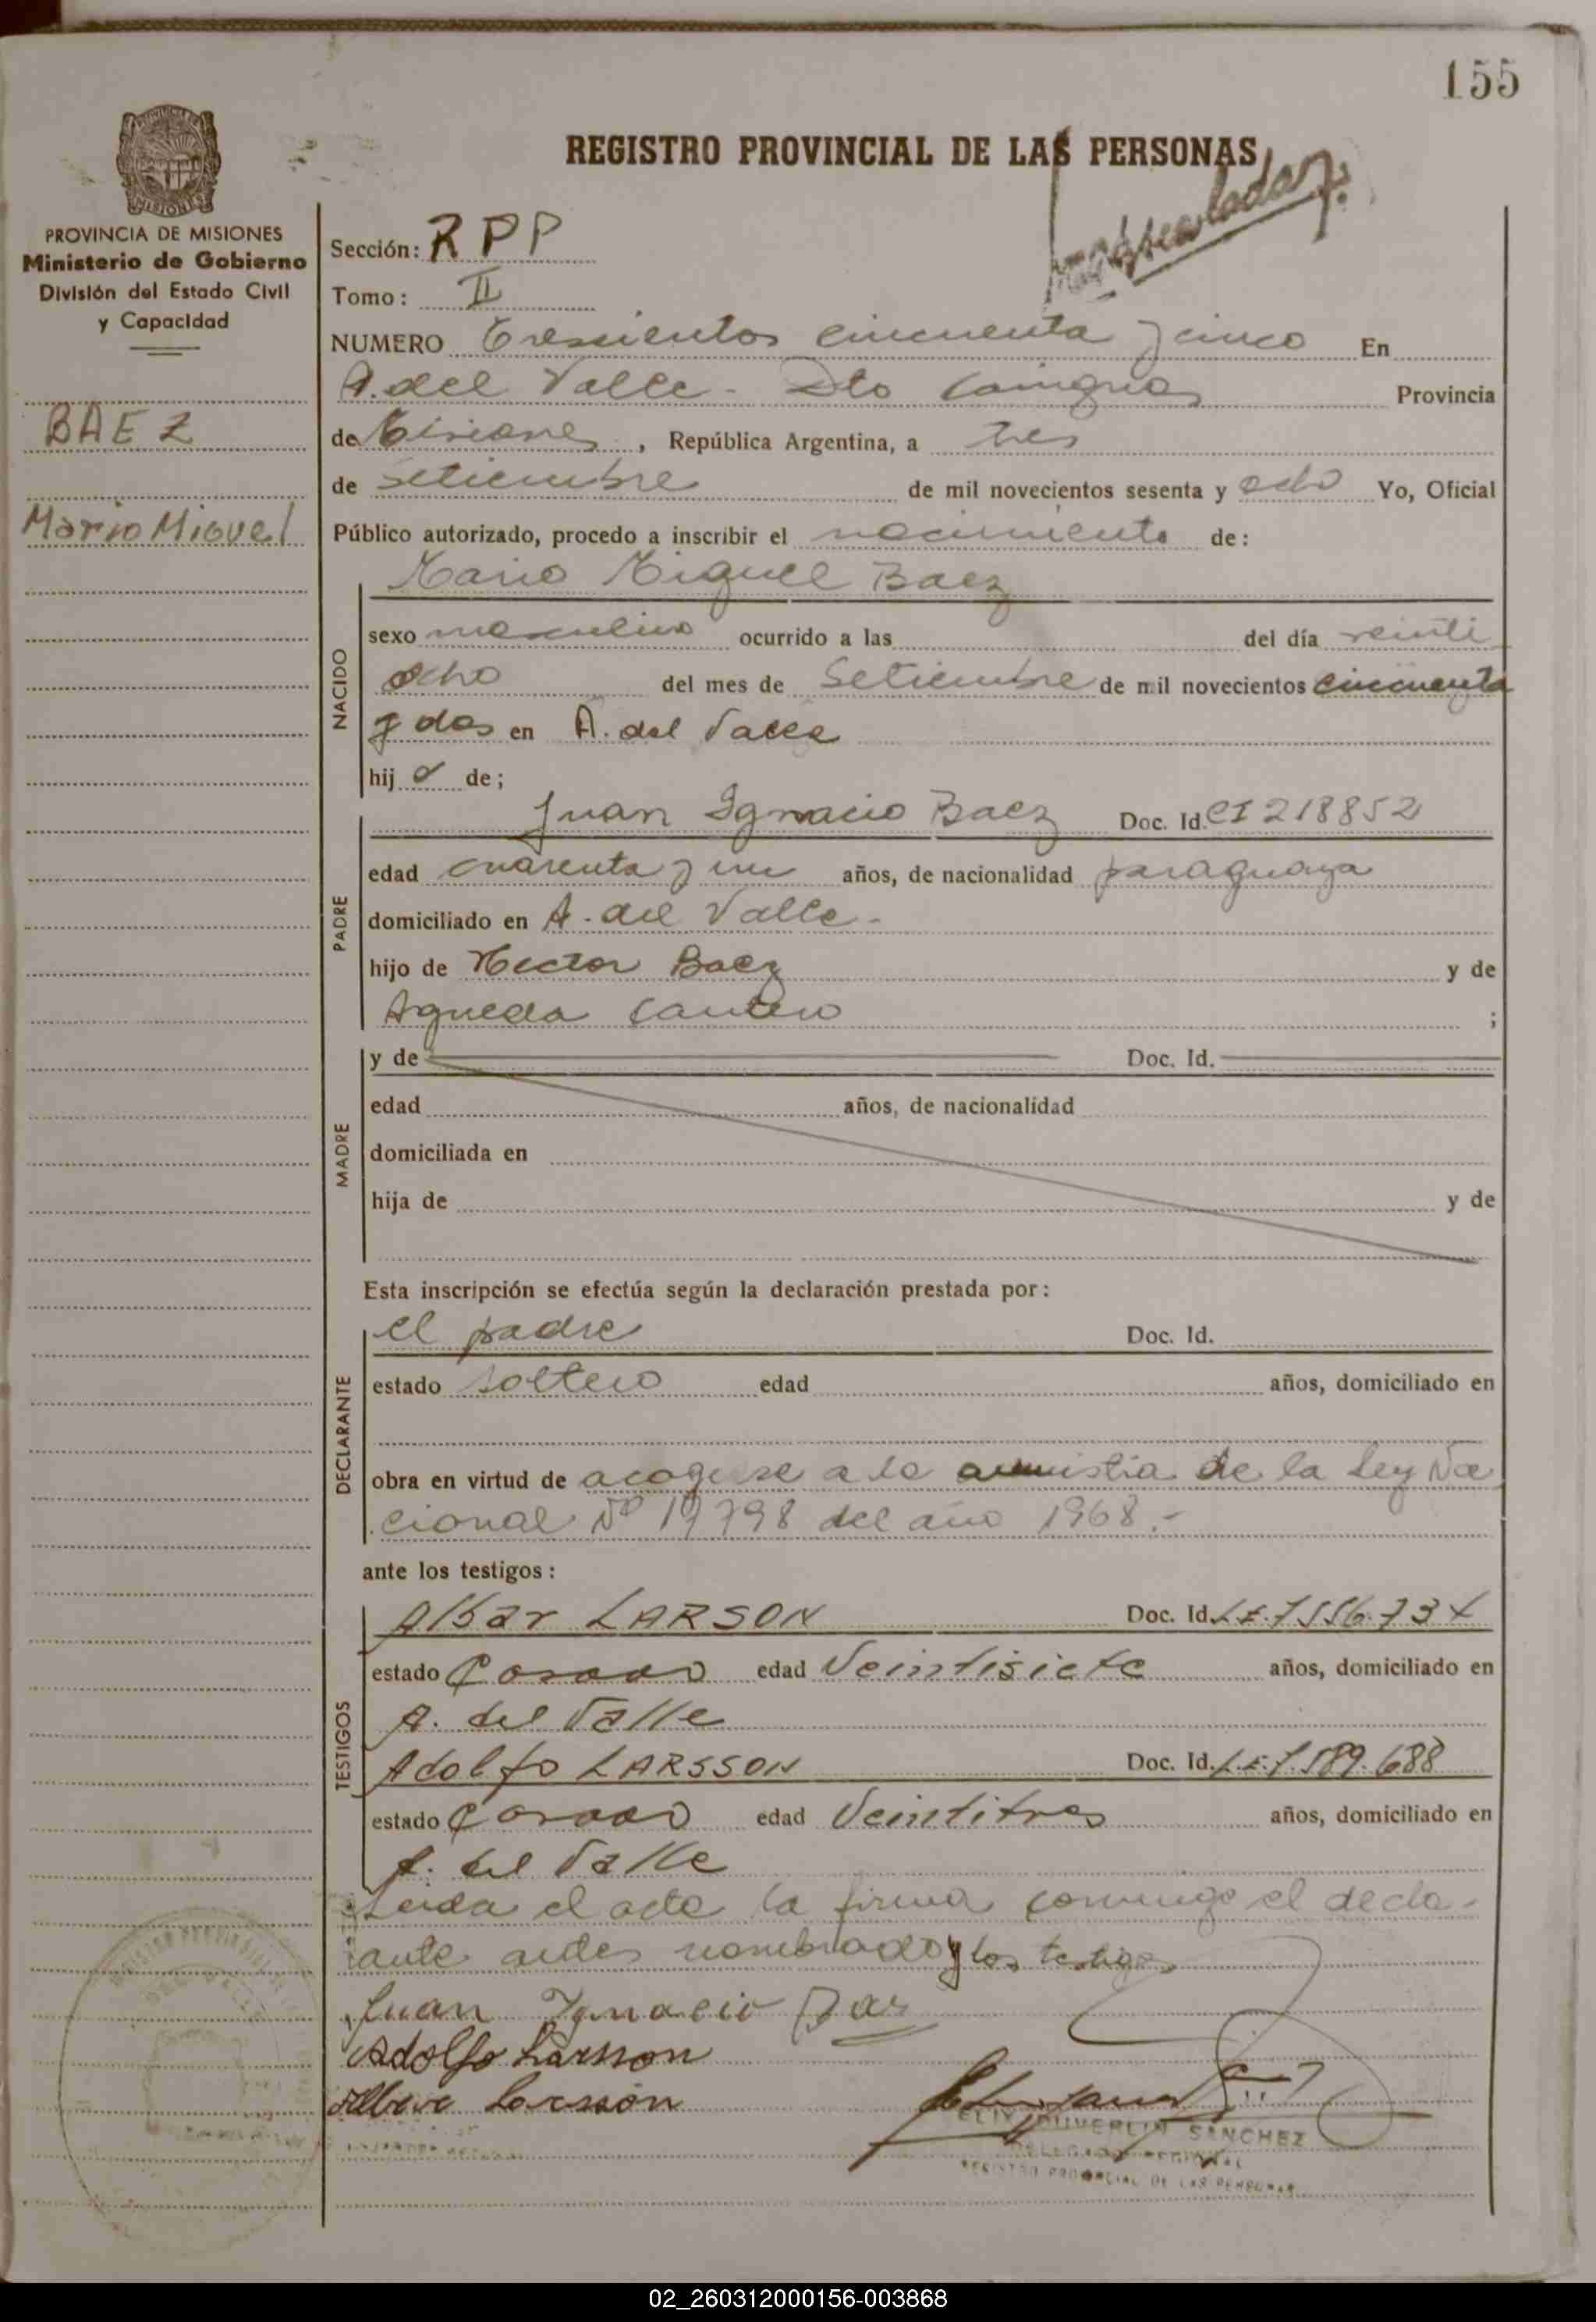 155
REGISTRO PROVINCIAL DE LAS PERSONAS
PROVINCIA DE MISIONES
Ministerio de Gobierno
División del Estado Civil
y Capacidad
BAEZ
Mario Miguel
Sección: RPP
Tomo: II
NUMERO Tresientos cincuenta y cinco En
A. del Valle - Dto Cainguas Provincia
de Misiones, República Argentina, a tres
de Setiembre de mil novecientos sesenta y ocho Yo, Oficial
Público autorizado, procedo a inscribir el nacimiento de:
Mario Miguel Baez
NACIDO
sexo masculino ocurrido a las del día veinti
ocho del mes de Setiembre de mil novecientos cincuenta
y dos en A. del Valle
hijo de;
PADRE
Juan Ignacio Baez Doc. Id. CI 218852
edad cuarenta y un años, de nacionalidad paraguaya
domiciliado en A. del Valle-
hijo de Hector Baez y de
Agueda Cantero ;
MADRE
y de Doc. Id.
edad años, de nacionalidad
domiciliada en
hija de y de
Esta inscripción se efectúa según la declaración prestada por:
DECLARANTE
el padre Doc. Id.
estado soltero edad años, domiciliado en
obra en virtud de acogerse a la amnistia de la Ley Na
cional Nº 17798 del año 1968.-
ante los testigos:
TESTIGOS
LARSON Doc. Id. L.E. 7.556.73
estado Casado edad Veintisiete años, domiciliado en
A. del Valle
Adolfo LARSSON Doc. Id. L.E. 7.589.688
estado Casado edad Veintitres años, domiciliado en
A. del Valle
Leida el acta la firma conmigo el decla-
rante antes nombrado y los testigos
Juan Ignacio Baz
Adolfo Larsson
Larsson
DUVERLIN SANCHEZ
DELEGADO REGIONAL
REGISTRO PROVINCIAL DE LAS PERSONAS
02_260312000156-003868